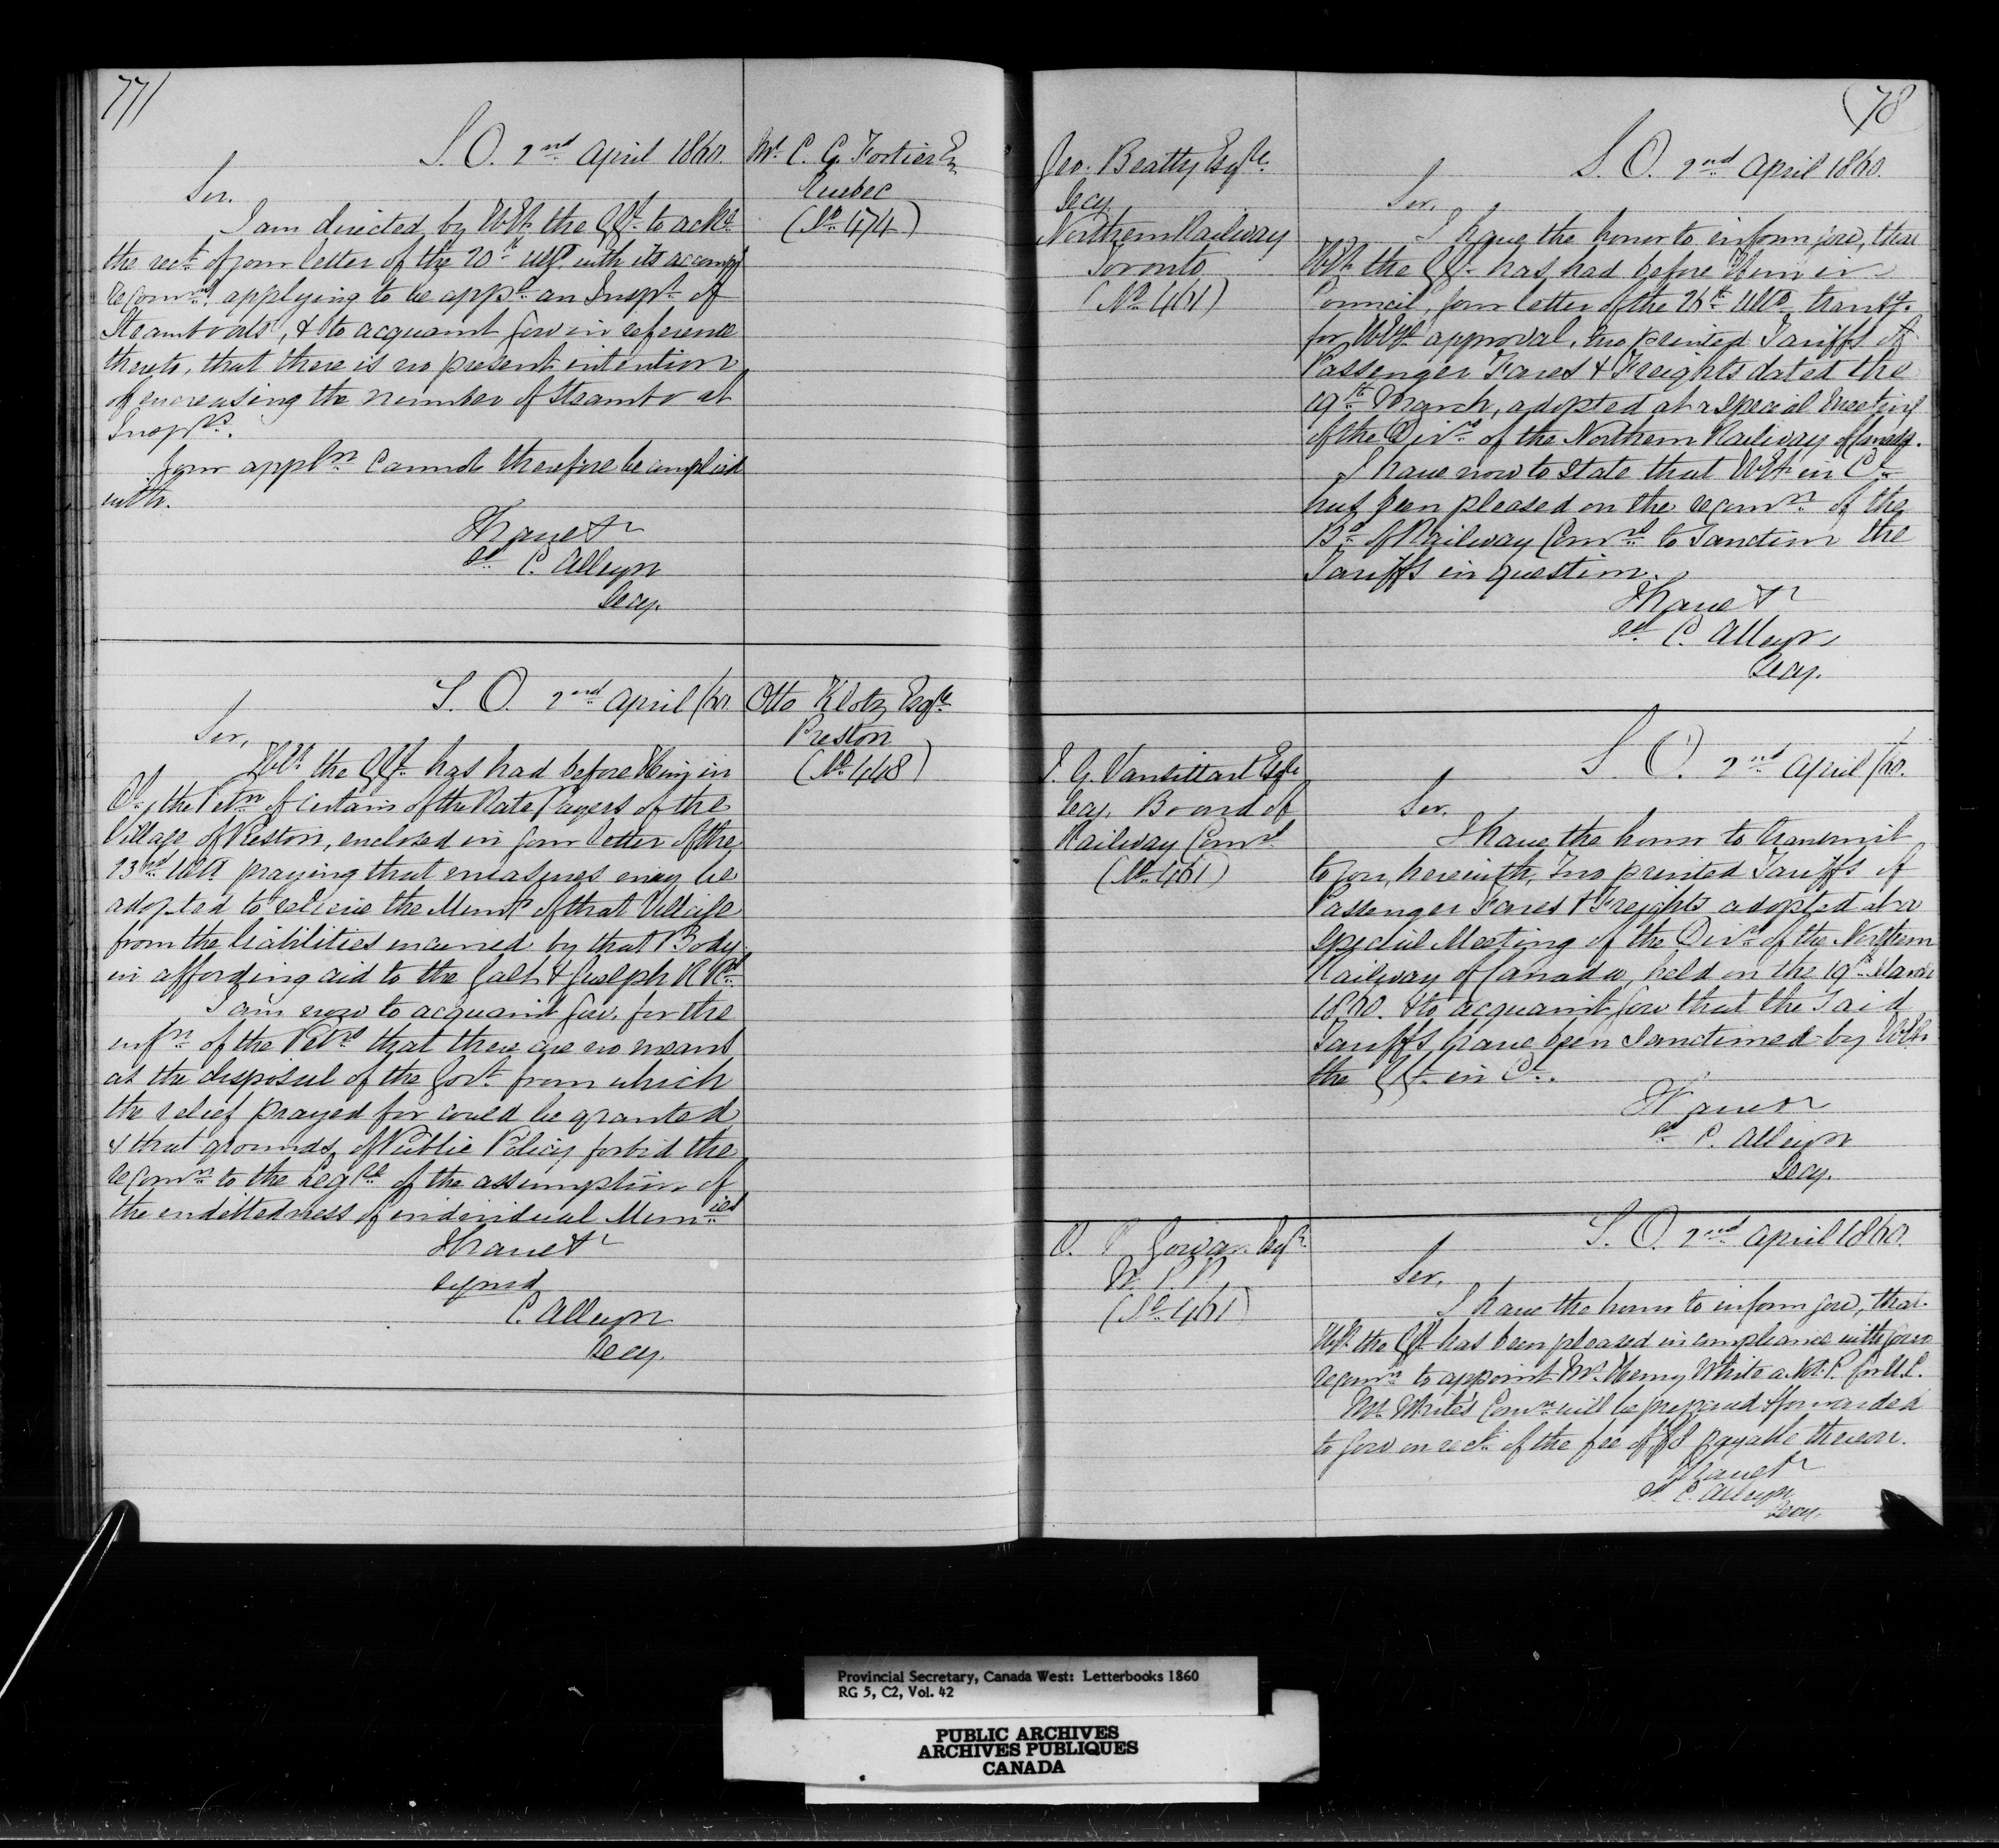 77
S. O. 2nd April 1860.
Mr. C. G. Fortier Esq
Quebec
(No. 474)
Sir.
I am directed by H.E. the GGl. to acke.
the rect. of your letter of the 20th ulto. with its accompg
recomns. applying to be appd. an Inspt. of
Steamboats, & to acquaint you in reference
thereto, that there is no present intention
of increasing the number of Steambt
Insprs.
Your appln. cannot therefore be complied
with.
I have &c
sd. C. Alleyn
Secy.
S. O. 2nd April /60.
Otto Klotz Esqre
Preston
(No. 448)
Sir,
H.E. the GGl. has had before Him in
Cl., the Petn. of certain of the Rate Payers of the
Village of Preston, enclosed in your letter of the
23rd ulto praying that measures may be
adopted to relieve the Munty of that Village
from the liabilities incurred by that Body
in affording aid to the Galt & Guelph R. Rd.
I am now to acquaint you, for the
infn. of the Petrs. that there are no means
at the disposal of the Govt. from which
the relief prayed for could be granted
& that grounds of Public Policy forbid the
recomn. to the Legre. of the assumption of
the endebtedness of individual Munies
I have &c
signed
C. Alleyn
Secy.
78
Geo. Beatty Esqre.
Secy.
Northern Railway
Toronto
(No. 461)
S. O. 2nd April 1860.
Sir,
I have the honor to inform you, that
H.E. the GGl. has had before Him in
Council, your letter of the 26th ulto. transg.
for H.E's approval, two printed Tariffs of
Passenger Fares & Freights dated the
19th March, adopted at a special Meeting
of the Dirs. of the Northern Railway of Canada.
I have now to state that H.E. in Cl.
has been pleased on the recomn. of the
Bd. of Railway Comrs. to sanction the
Tariffs in question.
I have &c
sd. C. Alleyn
Secy.
J. G. Vansittart Esqre
Secy. Board of
Railway Comrs
(No. 461)
S. O. 2nd April /60.
Sir.
I have the honor to transmit
to you, herewith, Two printed Tariffs of
Passenger Fares & Freights adopted at a
special Meeting of the Dirs. of the Northern
Railway of Canada, held on the 19th March
1860. & to acquaint you that the said
Tariffs have been sanctioned by H.E.
the GGl. in Cl.
I have &c
sd. C. Alleyn
Secy.
O. R. Gowan Esqr.
M. P. P.
(No. 461)
S. O. 2nd April 1860.
Sir,
I have the honor to inform you, that
H.E. the GGl. has been pleased in compliance with your
recomn. to appoint Mr. Henry White a N. P. for U. C.
Mr. White's Comn. will be prepared & forwarded
to you on rect. of the fee of $8 payable thereon.
I have &c
sd. C. Alleyn
Secy.
Provincial Secretary, Canada West: Letterbooks 1860
RG 5, C2, Vol. 42
PUBLIC ARCHIVES
ARCHIVES PUBLIQUES
CANADA